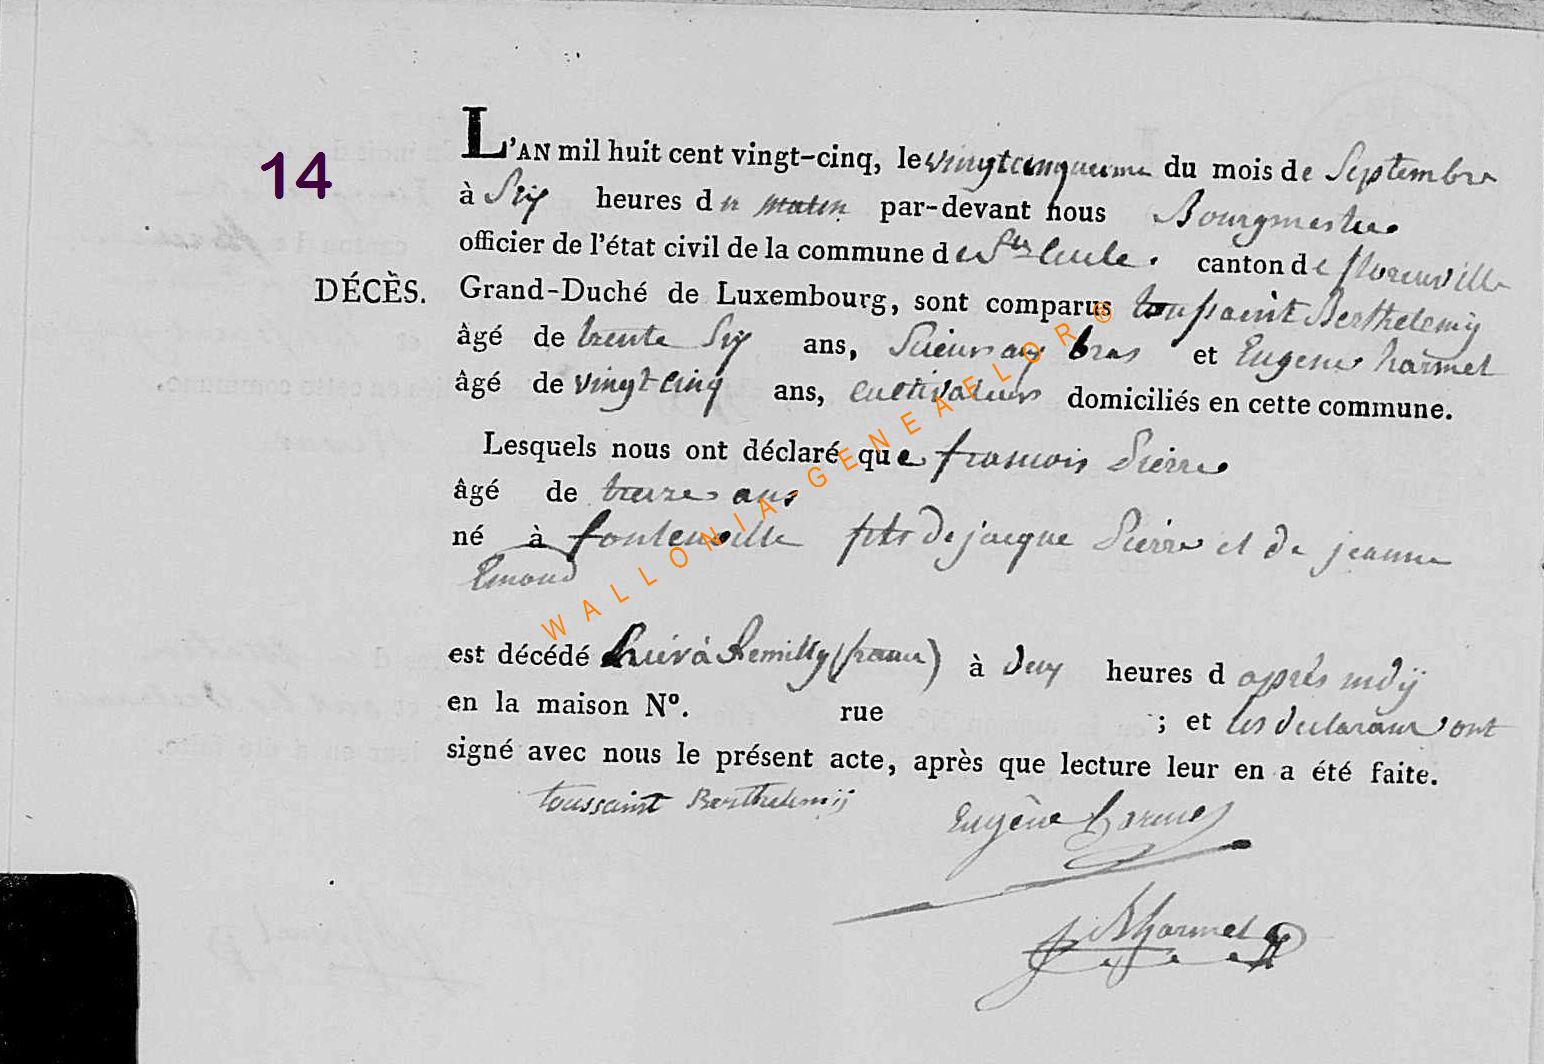 14
L'AN mil huit cent vingt-cinq, le vingtcinquieme du mois de Septembre
à Six heures du matin par-devant nous Bourgmestre
officier de l'état civil de la commune de Ste Cecile. canton de florenville
DÉCÈS. Grand-Duché de Luxembourg, sont comparus toussaint Berthelemy
âgé de trente Six ans, Scieur aux bras et Eugene harmel
âgé de vingt cinq ans, cultivateurs domiciliés en cette commune.
Lesquels nous ont déclaré que francois Pierre
âgé de treize ans
né à fontenoille fils de jacque Pierre et de jeanne
Emond
est décédé hier à Remilly (france) à deux heures d après midÿ
en la maison No. rue ; et les declarans ont
signé avec nous le présent acte, après que lecture leur en a été faite.
toussaint Berthelemij
Eugène harmel
Harmel
WALLONIA-GENEAELOR®